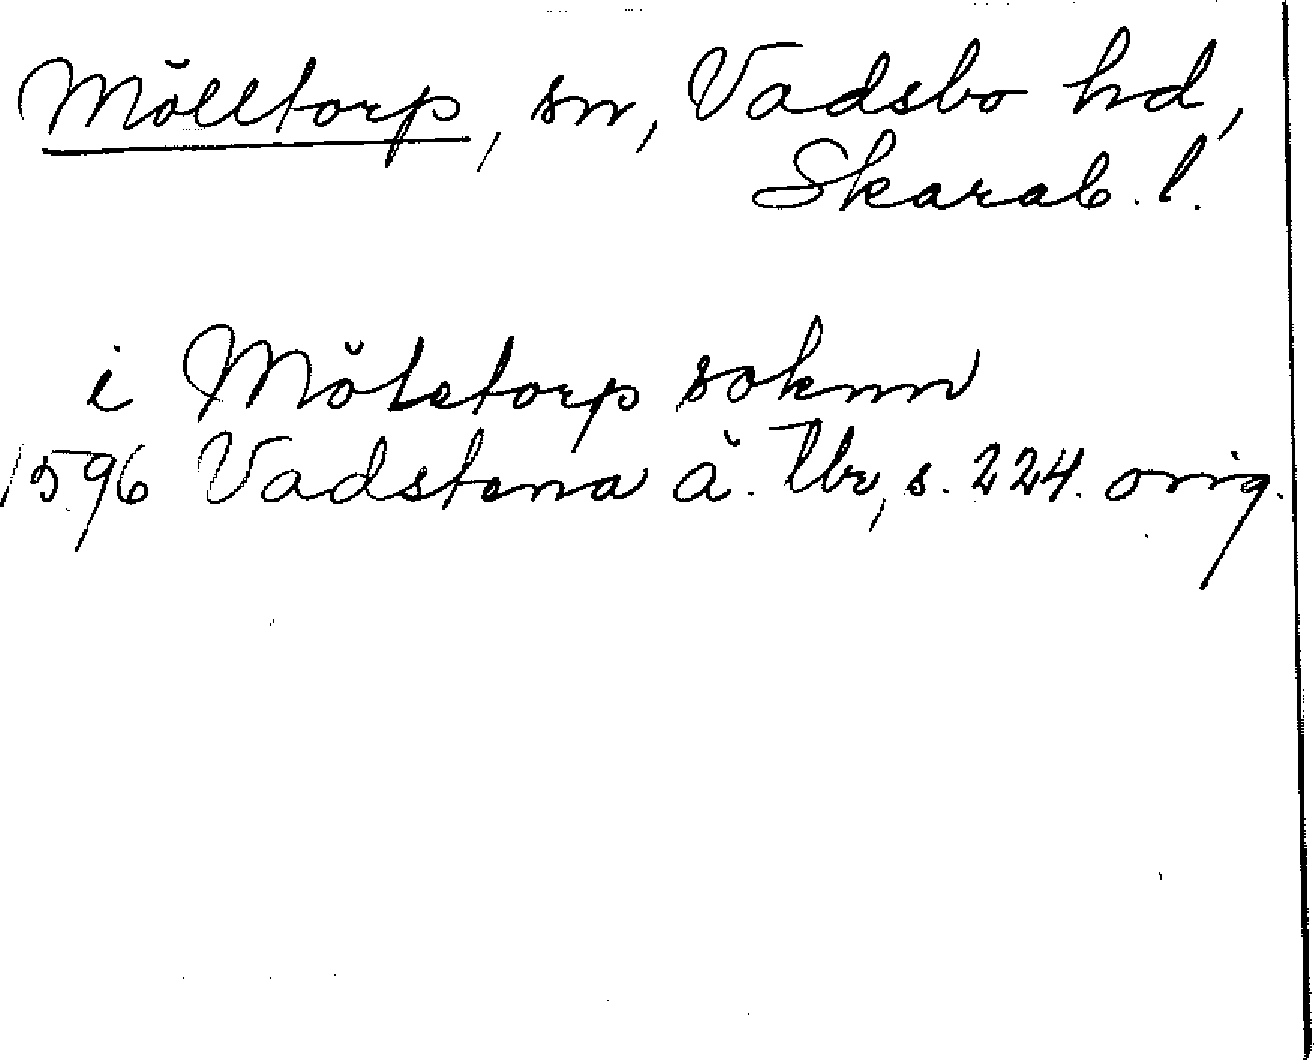 Mölltorp, sn, Vadsbo hd,
Skarab. l.
i Möletorp soknn
1596 Vadstena ä. Tbr, s. 224. orig.